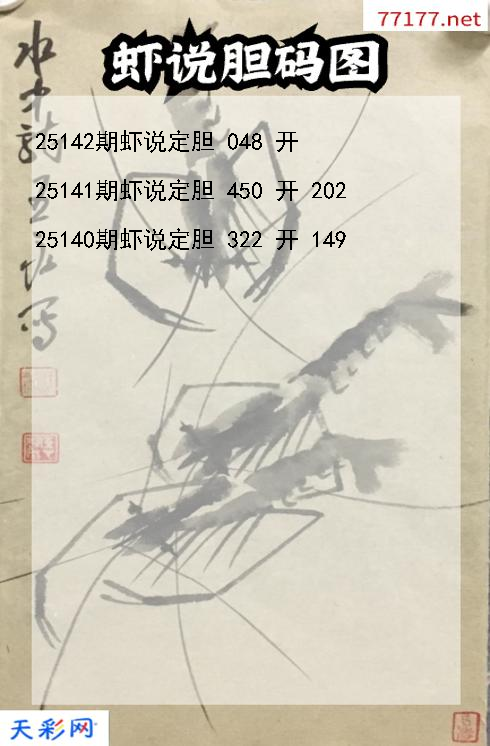 77177.net
虾说胆码图
25142期虾说定胆 048 开
25141期虾说定胆 450 开 202
25140期虾说定胆 322 开 149
天彩网